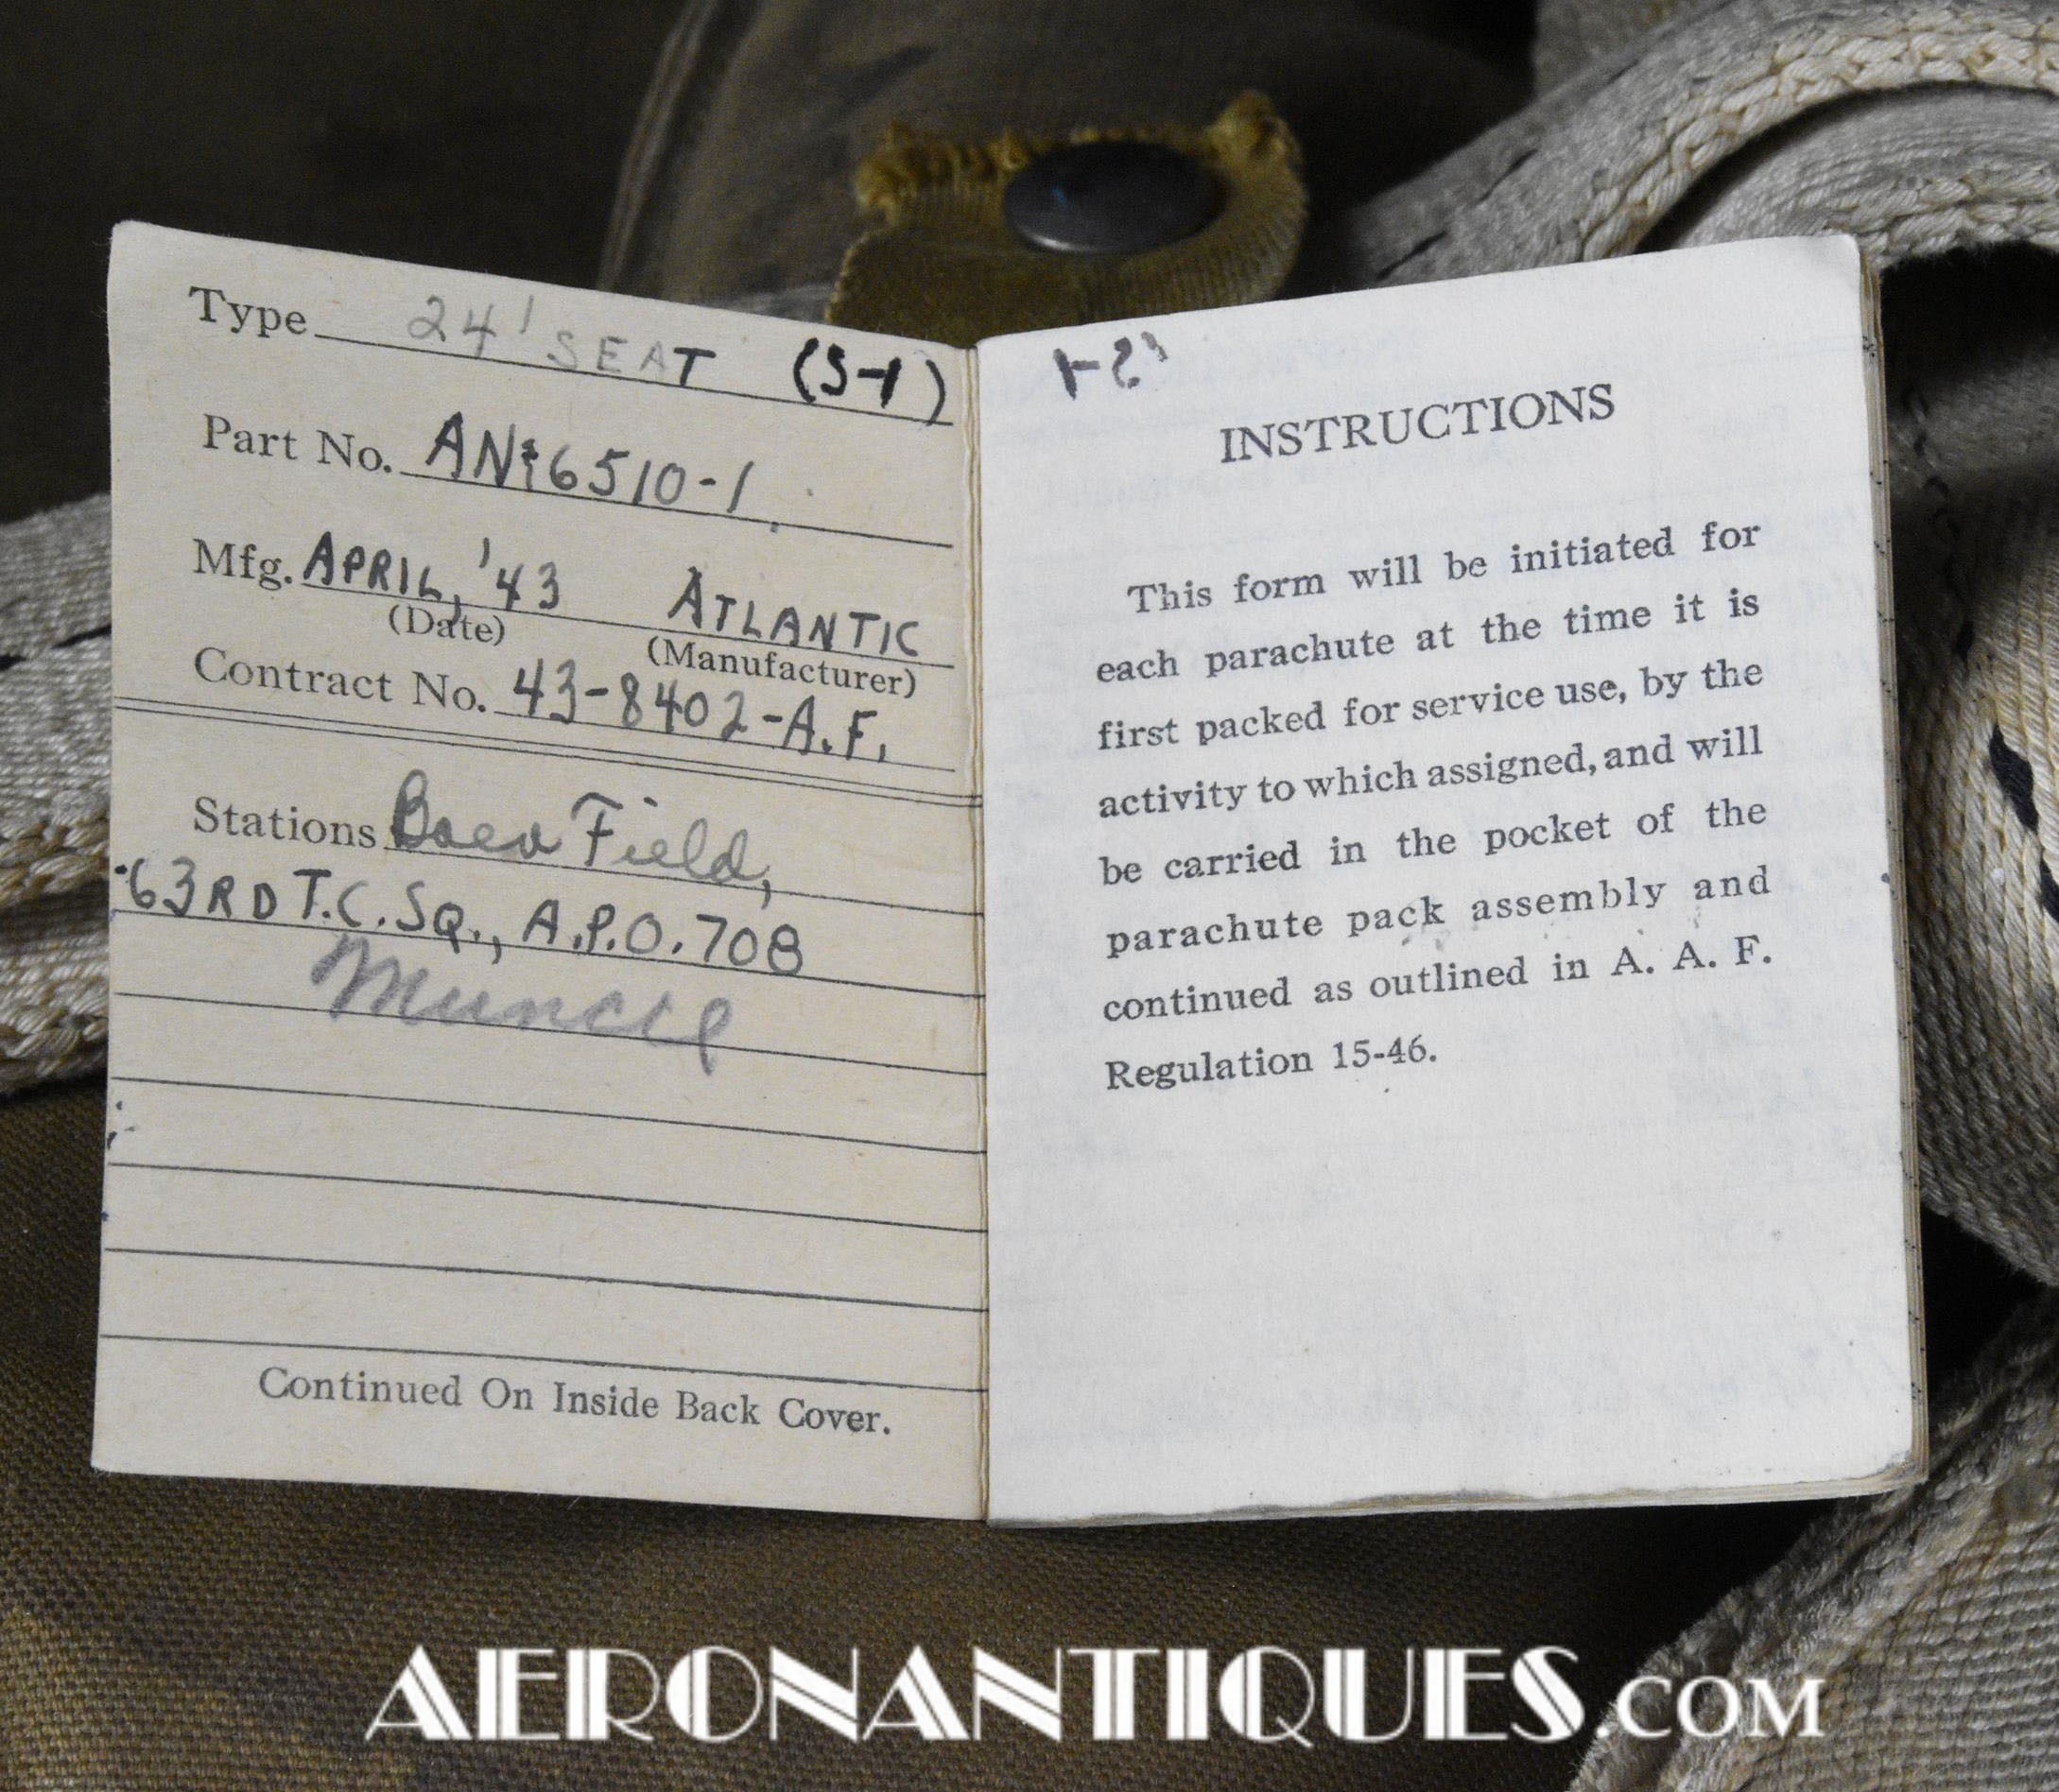 Type 24' SEAT (S-1)
Part No. AN 6510-1
Mfg. APRIL, '43 ATLANTIC
(Date) (Manufacturer)
Contract No. 43-8402-A.F.
Stations Baer Field,
63RD T.C. SQ., A.P.O. 708
Muncie
Continued On Inside Back Cover.
INSTRUCTIONS
This form will be initiated for
each parachute at the time it is
first packed for service use, by the
activity to which assigned, and will
be carried in the pocket of the
parachute pack assembly and
continued as outlined in A. A. F.
Regulation 15-46.
AERONANTIQUES.COM